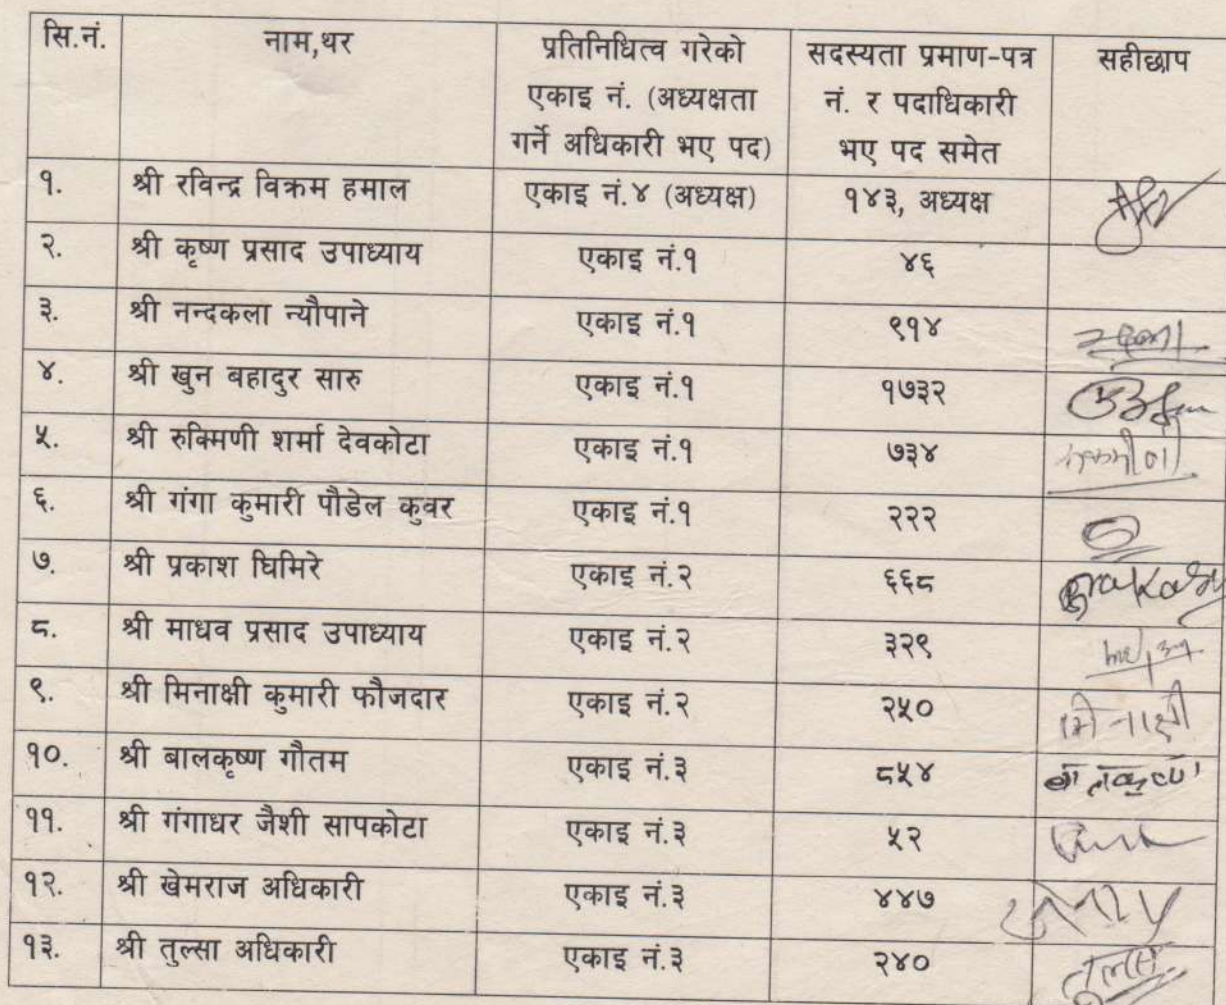 सि.नं. नाम,थर प्रतिनिधित्व गरेको सदस्यता प्रमाण-पत्र सहीछाप
एकाइ नं. (अध्यक्षता नं. र पदाधिकारी
गर्ने अधिकारी भए पद) भए पद समेत
१. श्री रविन्द्र विक्रम हमाल एकाइ नं.४ (अध्यक्ष) १४३, अध्यक्ष
२. श्री कृष्ण प्रसाद उपाध्याय एकाइ नं.१ ४६
३. श्री नन्दकला न्यौपाने एकाइ नं.१ ९१४
४. श्री खुन बहादुर सारु एकाइ नं.१ १७३२
५. श्री रुक्मिणी शर्मा देवकोटा एकाइ नं.१ ७३४
६. श्री गंगा कुमारी पौडेल कुवर एकाइ नं.१ २२२
७. श्री प्रकाश घिमिरे एकाइ नं.२ ६६८
८. श्री माधव प्रसाद उपाध्याय एकाइ नं.२ ३२९
९. श्री मिनाक्षी कुमारी फौजदार एकाइ नं.२ २५० मिनाक्षी
१०. श्री बालकृष्ण गौतम एकाइ नं.३ ८५४ बालकृष्ण
११. श्री गंगाधर जैशी सापकोटा एकाइ नं.३ ५२
१२. श्री खेमराज अधिकारी एकाइ नं.३ ४४७
१३. श्री तुल्सा अधिकारी एकाइ नं.३ २४०